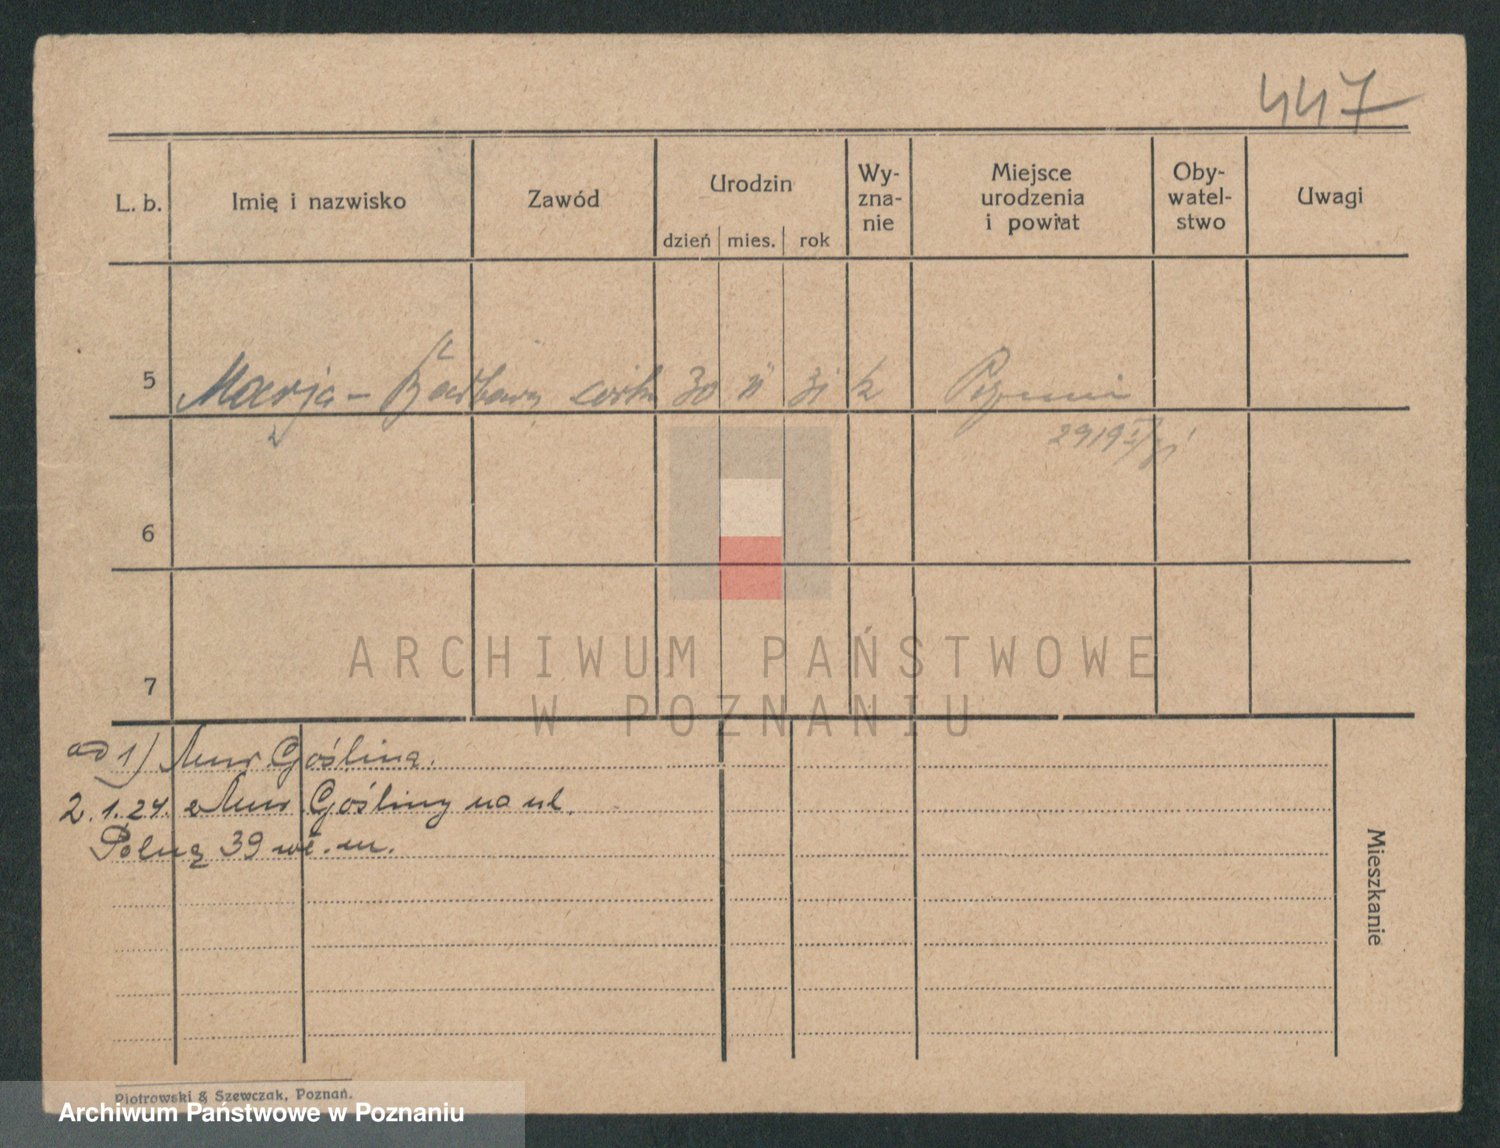 447
L. b. Imię i nazwisko Zawód Urodzin dzień mies. rok Wy-zna-nie Miejsce urodzenia i powiat Oby-watel-stwo Uwagi
5 Marja - Barbara córka 30 11 31 k Poznań
2919
6
7
ARCHIWUM PAŃSTWOWE
W POZNANIU
ad 1) Mur. Goślina.
2.1.24. z Mur. Gośliny na ul.
Polną 39 wł. m.
Mieszkanie
Piotrowski & Szewczak, Poznań.
Archiwum Państwowe w Poznaniu